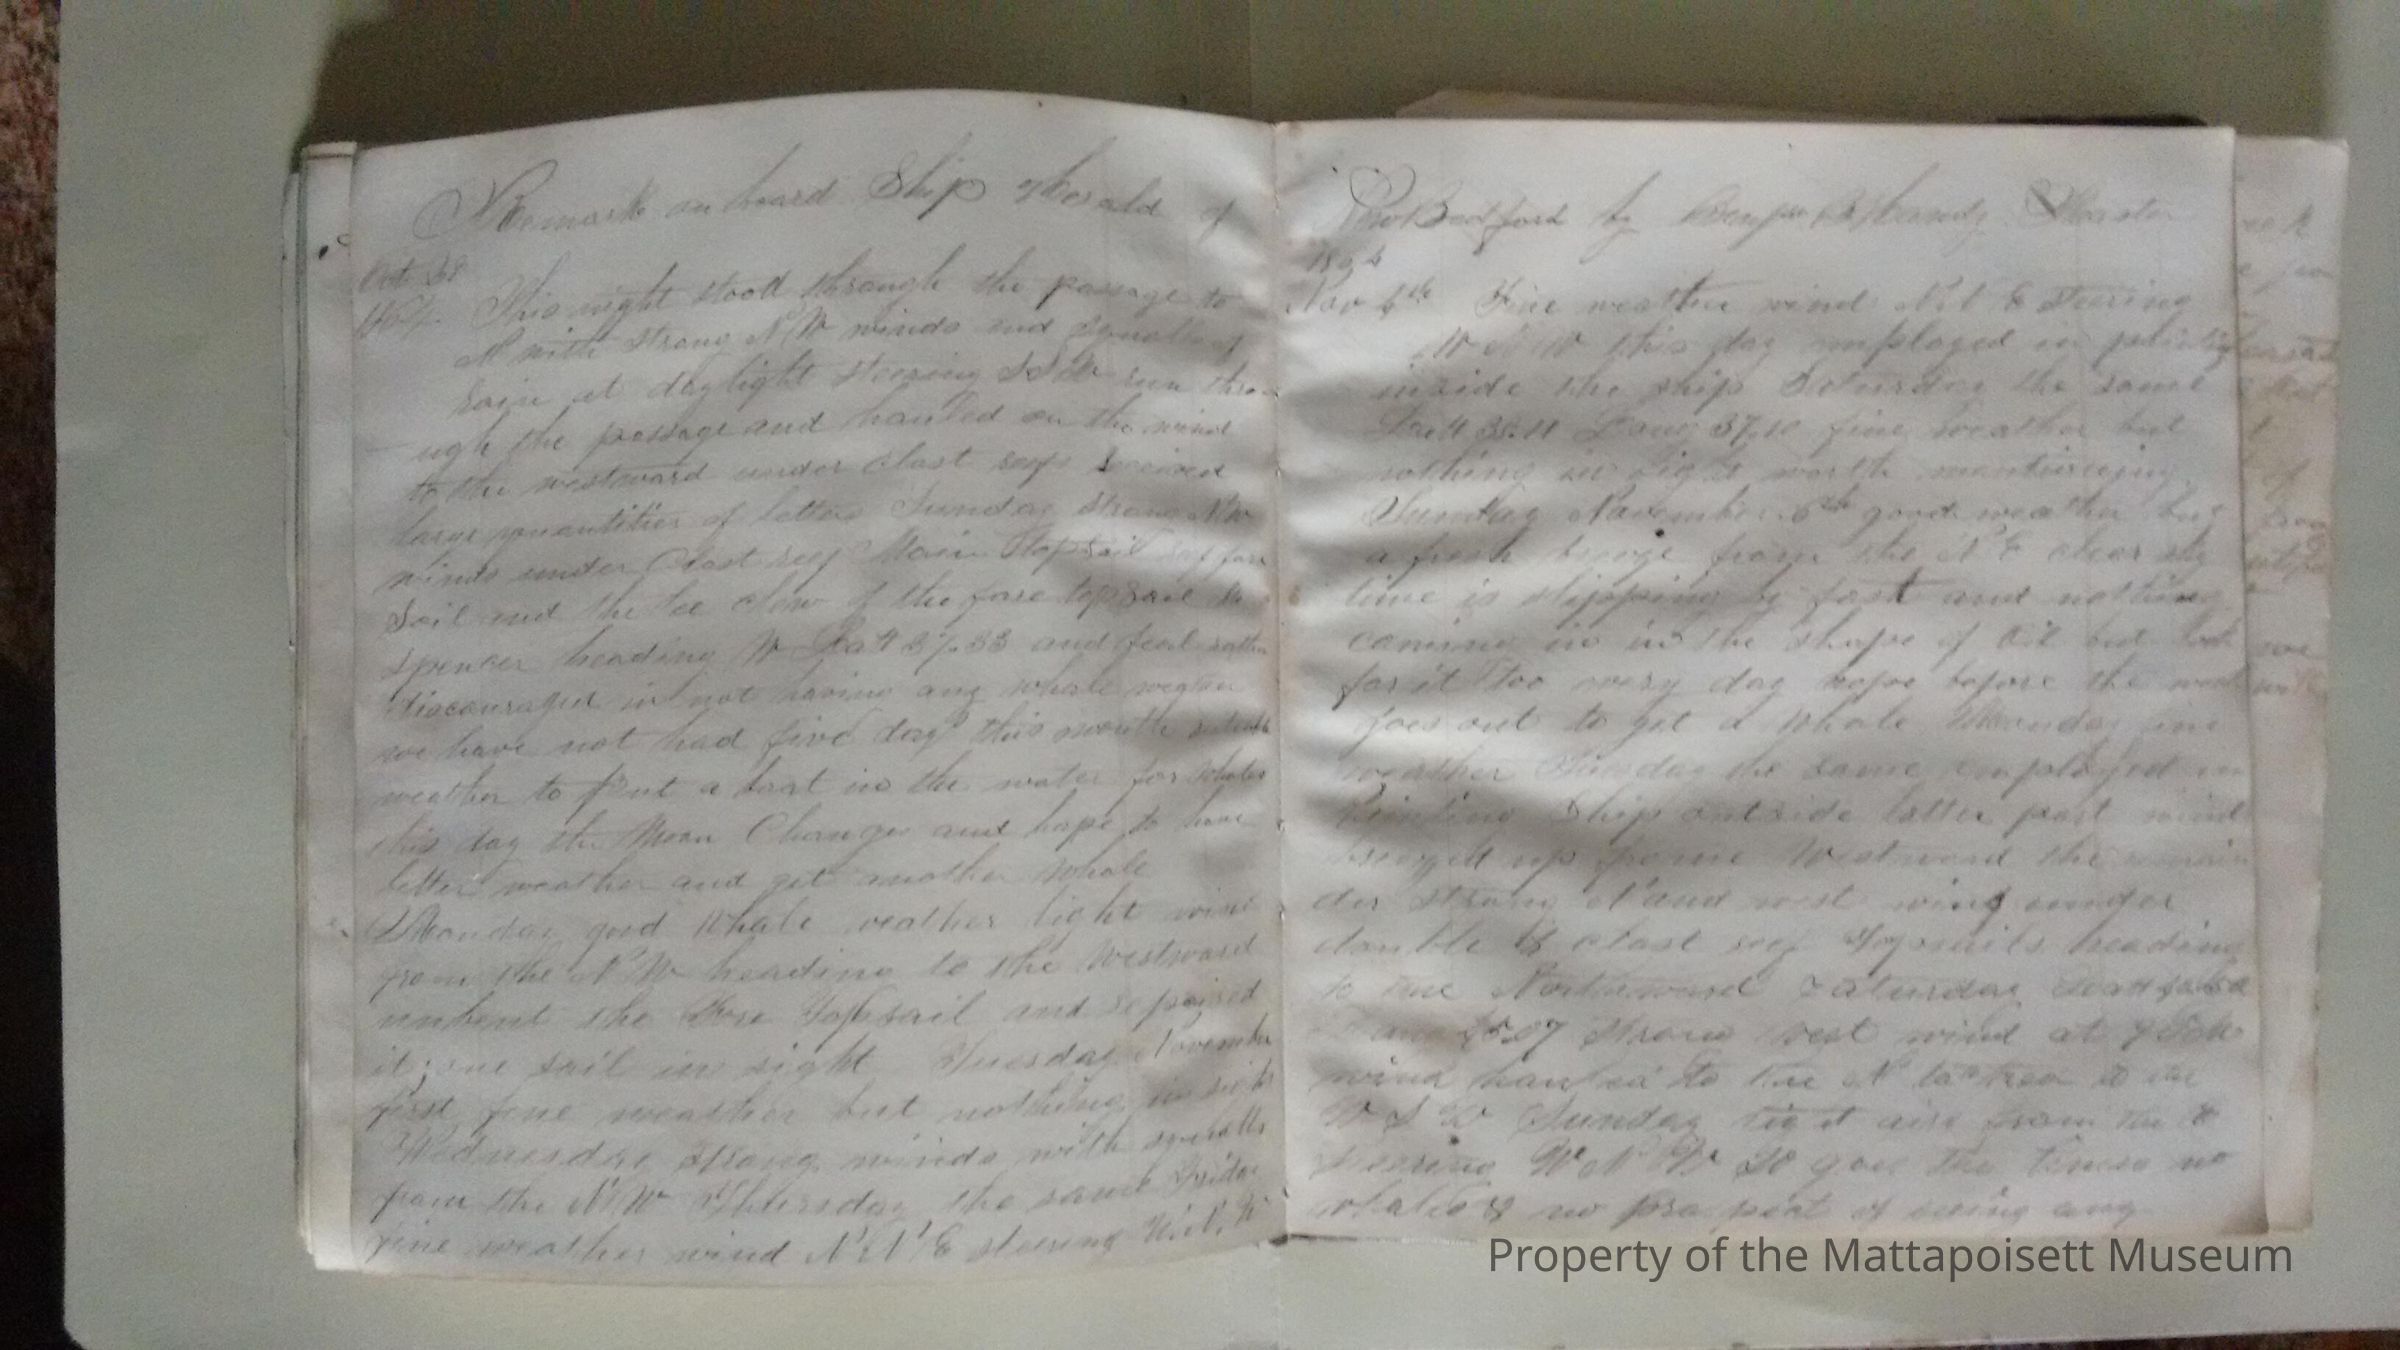 Remark on board Ship Herald of
Oct 28
1864 This night stood through the passage to
N with strong N W winds and squalls of
rain at daylight steering S S W run thro-
ugh the passage and hauled on the wind
to the westward under Clost reefs received
large quantities of letters Sunday strong NW
winds under Clost reef Main Topsail reef fore
Sail and the lee clew of the fore topsail &
spencer heading W Latt 37.33 and feel rather
discouraged in not having any whale wether
we have not had five days this month suitable
weather to put a boat in the water for whales
this day the Moon Changes and hope to have
better weather and get another whale
Monday good Whale weather light wind
from the N W heading to the Westward
unbent the Fore Topsail and repaired
it; one sail in sight Tuesday November
first fine weather but nothing in sight
Wednesday strong winds with squalls
from the N W Thursday the same Friday
fine weather wind N N E steering W N W
New Bedford by Master
1864
Nov 4th Fine weather wind N N E steering
W N W this day employed in painting
inside the ship Saturday the same
Latt 38.11 Long 37.10 fine weather but
nothing in sight worth mentioning
Sunday November 6th good weather but
a fresh breeze from the N E clear sky
time is slipping by fast and nothing
coming in in the shape of Oil but look
for it too every day hope before the week
goes out to get a whale Monday fine
weather Tuesday the same employed in
Painting Ship outside latter part wind
breezed up from Westward the remain
der strong N and west wind under
double & clost reef Topsails heading
to the Northward Saturday Latt
Long strong west wind at
wind hauled to the N tacked to the
W S W Sunday light airs from the
steering W N W So goes the times no
whales & no prospect of seeing any
Property of the Mattapoisett Museum